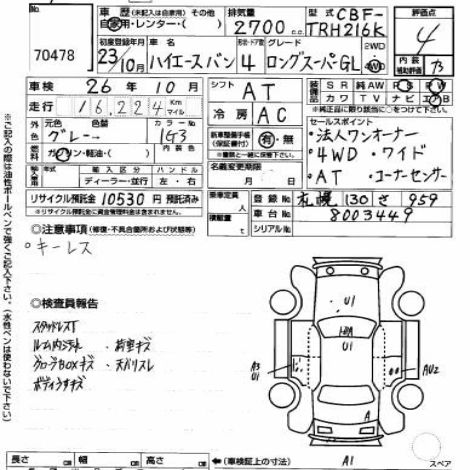 車 歴 (※記入は自家用) その他
自家用・レンタカー・( )
排気量
2700 c.c.
型式 CBF-
TRH216K
評価点
4
70478
初度登録年月
23/10月
車名
ハイエースバン
形状・ドア数
4
グレード
ロングスーパーGL
2WD
・
4WD
内装
補助評価
B
車検 26年 10月
シフト AT
装備品 SR 純AW PS PW
カワ TV ナビ エアB
走行 16,224 Km
マイル
冷房 AC
外元色 色替 カラーNo
グレー 1G3
燃料 ガソリン・軽油・( )
輸入車用
輸入区分 ハンドル
ディーラー・並行 左・右
リサイクル預託金 10530円 預託済み
リサイクル預託金は車両価格に含まれません。
新車整備手帳
(保証書付)
有・無
※箇所に記入下さい。
名義変更期限
月 日
乗車定員 人
積載量 kg
セールスポイント
・法人ワンオーナー
・4WD ・ワイド
・AT ・コーナーセンサー
登録No 札幌 130 さ 959
車台No 8003449
シリアルNo
◎注意事項 (修復・不具合箇所および状態等)
○キーレス
◎検査員報告
スタッドレスT
ルーム内汚れ ・荷室キズ
グローブBOXキズ ・天バリスレ
ボディ小キズ
U1
U1
A3
U1
AU2
A
A1
長さ cm 幅 cm 高さ cm
←(車検証上の寸法)
スペア
※ご記入の際は油性ボールペンで強くご記入下さい。(水性ペンは使わないで下さい)